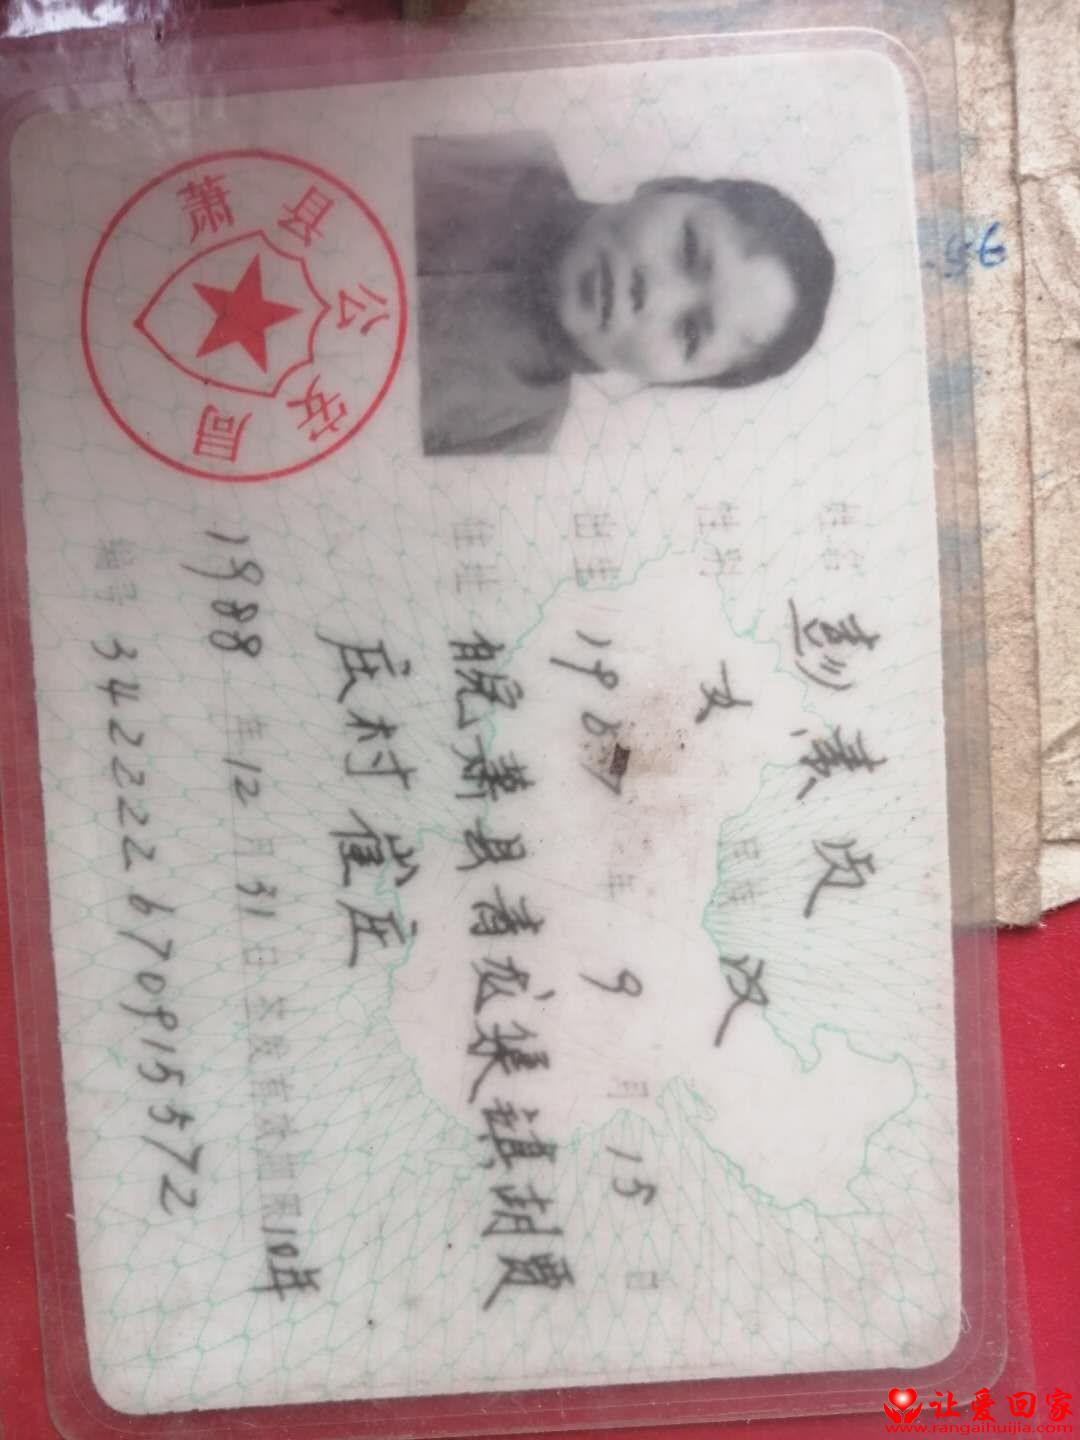 姓名 彭素
性别 女 民族 汉
出生 1967年9月15日
住址 皖萧县青龙集镇胡贾
庄村崔庄
1988年12月31日签发有效期限10年
编号 342222670915572
萧县公安局
56
让爱回家
www.rangaihuijia.com